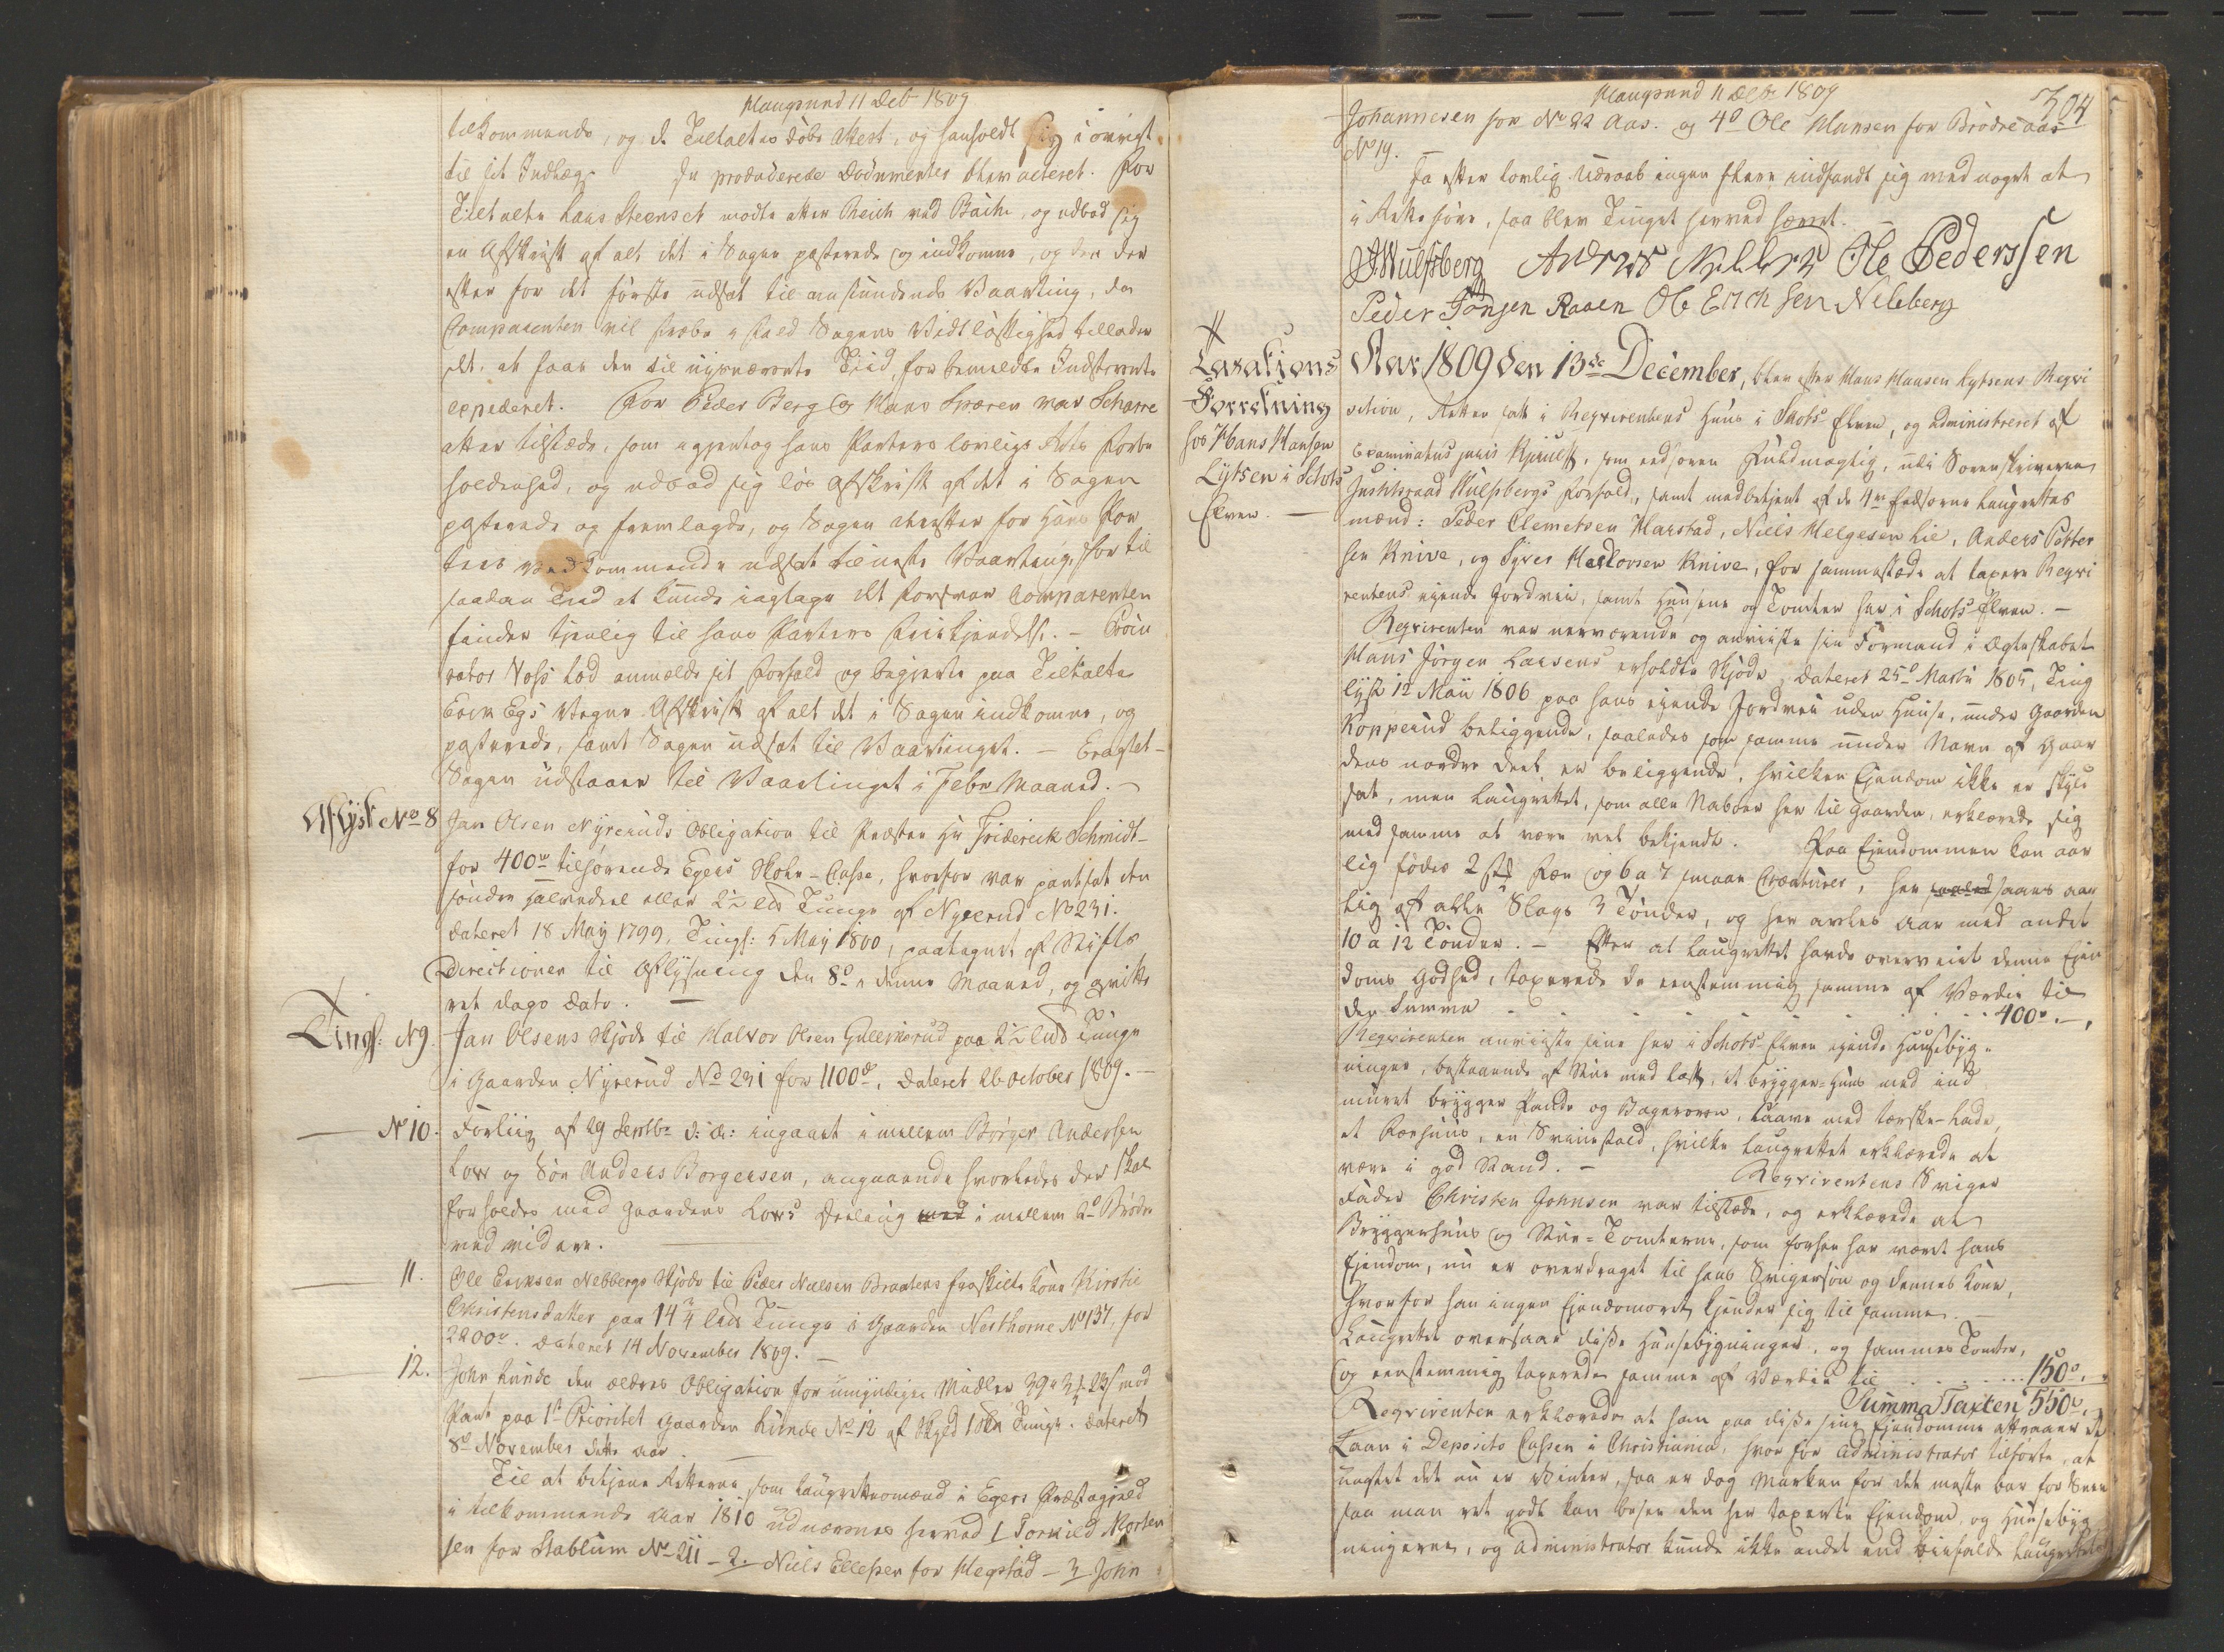 Haugsund 11 Debr 1809
tilkommende, og de Tiltaltes døbe Attest, og henholdt sig i øvrigt
til sit Indlæg. De producerede Documenter blev acteret. For
Tiltalte Lars Steenset mødte atter Reich ved Bache, og udbad sig
en Afskrift af alt det i Sagen passerede og indkomne, og den der
efter for det første udsat til anstundende Vaarting, da
Comparenten vil stræbe i fald Sagens Vidtløftighed tillader
det, at faae den til nysnævnte Tiid for bemeldte Indstevnte
expederet. For Peder Berg og Hans Spæren var Scharre
atter tilstæde, som igjentog hans Parters lovlige Retts Forbe
holdenhed, og udbad sig løs Afskrift af det i Sagen
passerede og fremlagde, og Sagen derefter for hans Par
ters vedkommende udsat til neste Vaarting, for til
saadan Tiid at kunde iagttage det Forsvar Comparenten
finder tjenlig til hans Parters Friekjendelse. - Procu
rator Voss lod anmelde sit Forfald og begjerte paa Tiltalte
Erik Egs Vegne Afskrift af alt det i Sagen indkomne, og
passerede, samt Sagen udsat til Vaartinget. - Eragtet
Sagen udstaaer til Vaartinget i Febr Maaned. -
Aflyst No 8
Jan Olsen Nyreruds Obligation til Præsten Hr Friderich Schmidt
for 400rd tilhørende Egers Skole-Casse, hvorfor var pantsat den
søndre halvedeel eller 2½ Lds Tunge af Nyrerud No 231.
dateret 18 May 1799, Tingl: 5 May 1800, paategnet af Stifts
Directionen til Aflysning den 8de i denne Maaned, og qvitte
ret dags dato. -
Tingl: N 9.
Jan Olsens Skjøde til Halvor Olsen Gullerud paa 2½ Lds Tunge
i Gaarden Nyrerud No 231 for 1100rd, dateret 26 October 1809. -
- No 10.
Forliig af 29 Septbr d: A: ingaaet i mellem Børger Andersen
Low og Søn Anders Borgersen, angaaende hvorledes der skal
forholdes med Gaardens Lows Deeling i mellem 2de Brødre
med videre.
- 11.
Ole Eriksen Nebbergs Skjøde til Peder Nielsen Braatens fraskilte Kone Kirstie
Christensdatter paa 14¾ Lds Tunge i Gaarden Nerthorne No 137, for
2200rd. dateret 14 November 1809. -
- 12.
John Lunde den ældres Obligation for umyndiges Midler 39rd 3 23s mod
Pant paa 1st Prioritet i Gaarden Lunde No 12 af Skyld 1 Tunge. dateret
8de November dette Aar. -
Til at betjene Retterne som Laugrettesmænd i Egers Præstegjeld
i tilkommende Aar 1810 udnævnes herved 1 Torkild Morten
sen for Stablum No 211 - 2. Niels Ellefsen for Hegstad - 3 John
Haugsund 11 Debr 1809
304
Johannesen for No 22 Aas. og 4de Ole Hansen for Brødre Aas
No 19. -
Da efter lovlig Udraab ingen flere indfandt sig med noget at
i Rette føre, saa blev Tinget herved hævet. -
JWulfsberg Ole Pederssen
Peder Jonsen Raaen Ole Erichsen Nebberg
Taxations
Forretning
hos Hans Hansen
Lytsen i Schots
Elven. -
Aar 1809 den 13de December, blev efter Hans Hansen Lytsens Reqvi
sition, Retten satt i Reqvirentens Huus i Skots Elven, og administreret af
Examinatus juris Kjerulf, som eedsvoren Fuldmægtig, udi Sorenskriveren
Justitsraad Wulfsbergs Forfald, samt medbetjent af de 4re Eedsorne Laugrettes
mænd: Peder Clemetsen Harstad, Niels Helgesen Lie, Anders Petter
sen Knive, og Syver Halvorsen Knive, for sammestæds at taxere Reqvi
rentens ejende Jordvei, samt Huusene og Tomten her i Schots-Elven. -
Reqvirenten var nærværende og anviiste sin Formand i Ægteskabet
Hans Jørgen Larsens erholdte Skjøde, dateret 25de Martii 1805, Ting
lyst 12 Maii 1806 paa hans ejende Jordvei uden Huuse, under Gaarden
Kopperud beliggende, saaledes som samme under Navn af Gaar
dens nordre Deel er beliggende, hvilken Ejendom ikke er skyld
sat, men Laugrettet, som alle Naboer her til Gaarden, erklærede sig
med samme at være vel bekjendt. Paa Ejendommen kan aar
lig fødes 2 std Kør og 6 a 7 smaae Creaturer, her saaes aar
lig af alle Slags 3 Tønder, og her avles Aar med andet
10 a 12 Tønder. - Efter at Laugrettet havde overveiet denne Ejen
doms Godhed, taxerede de eenstemmig samme af Værdie til
den Summa . . . . . . . . . 400rd. -,
Reqvirenten anviiste sine her i Schots-Elven ejende Huusebyg-
ninger, bestaaende af Stue med Loft, et Brygger-Huus med ind
muret Brygger Pande og Bagerovn, Laave med Tærske-Lade,
et Fæehuus, en Sviinestald, hvilke Laugrettet erklærede at
være i god Stand. - Reqvirentens Sviger
Fader Christen Johnsen var tilstæde, og erklærede at
Bryggerhuus og Stue-Tomterne, som forhen har været hans
Ejendom, nu er overdraget til hans Svigersøn og dennes Kone,
hvorfor han ingen Ejendomsret kjender sig til samme. -
Laugrettet oversaae disse Huusebygninger, og sammes Tomter,
og eenstemmig taxerede samme af Værdie til . . . . . . 150rd. -
Summa Taxten 550rd. -
Reqvirenten erklærede at han paa disse sine Ejendomme attraaer et
Laan i Deposito Cassen i Christiania, hvor for Administrator tilførte, at
uagtet det nu er Vinter, saa er dog Marken for det meste bar for Snee
saa man ret godt kan besee den her taxerte Ejendom, og Huusebyg
ningerne, og Administrator kunde ikke andet end biefalde Laugrettets